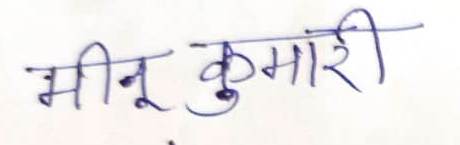 मीनू कुमारी